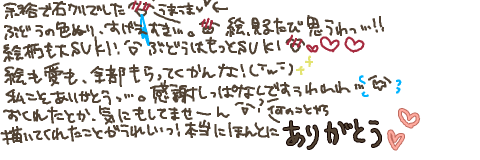 ぶどうの色ぬり、すげえすきぃ。絵、見るたび思うわっ…!!
絵柄もスSUKI! ぶどうはもっとSUKI
絵も愛も、全部もらってくかんな!
私こそありがとうっ…。感謝しっぱなしですぅわれわれ…
おくれたとか、気にもしてませーん 何のことやら
描いてくれたことがうれしいっ!本当にほんとにありがとう